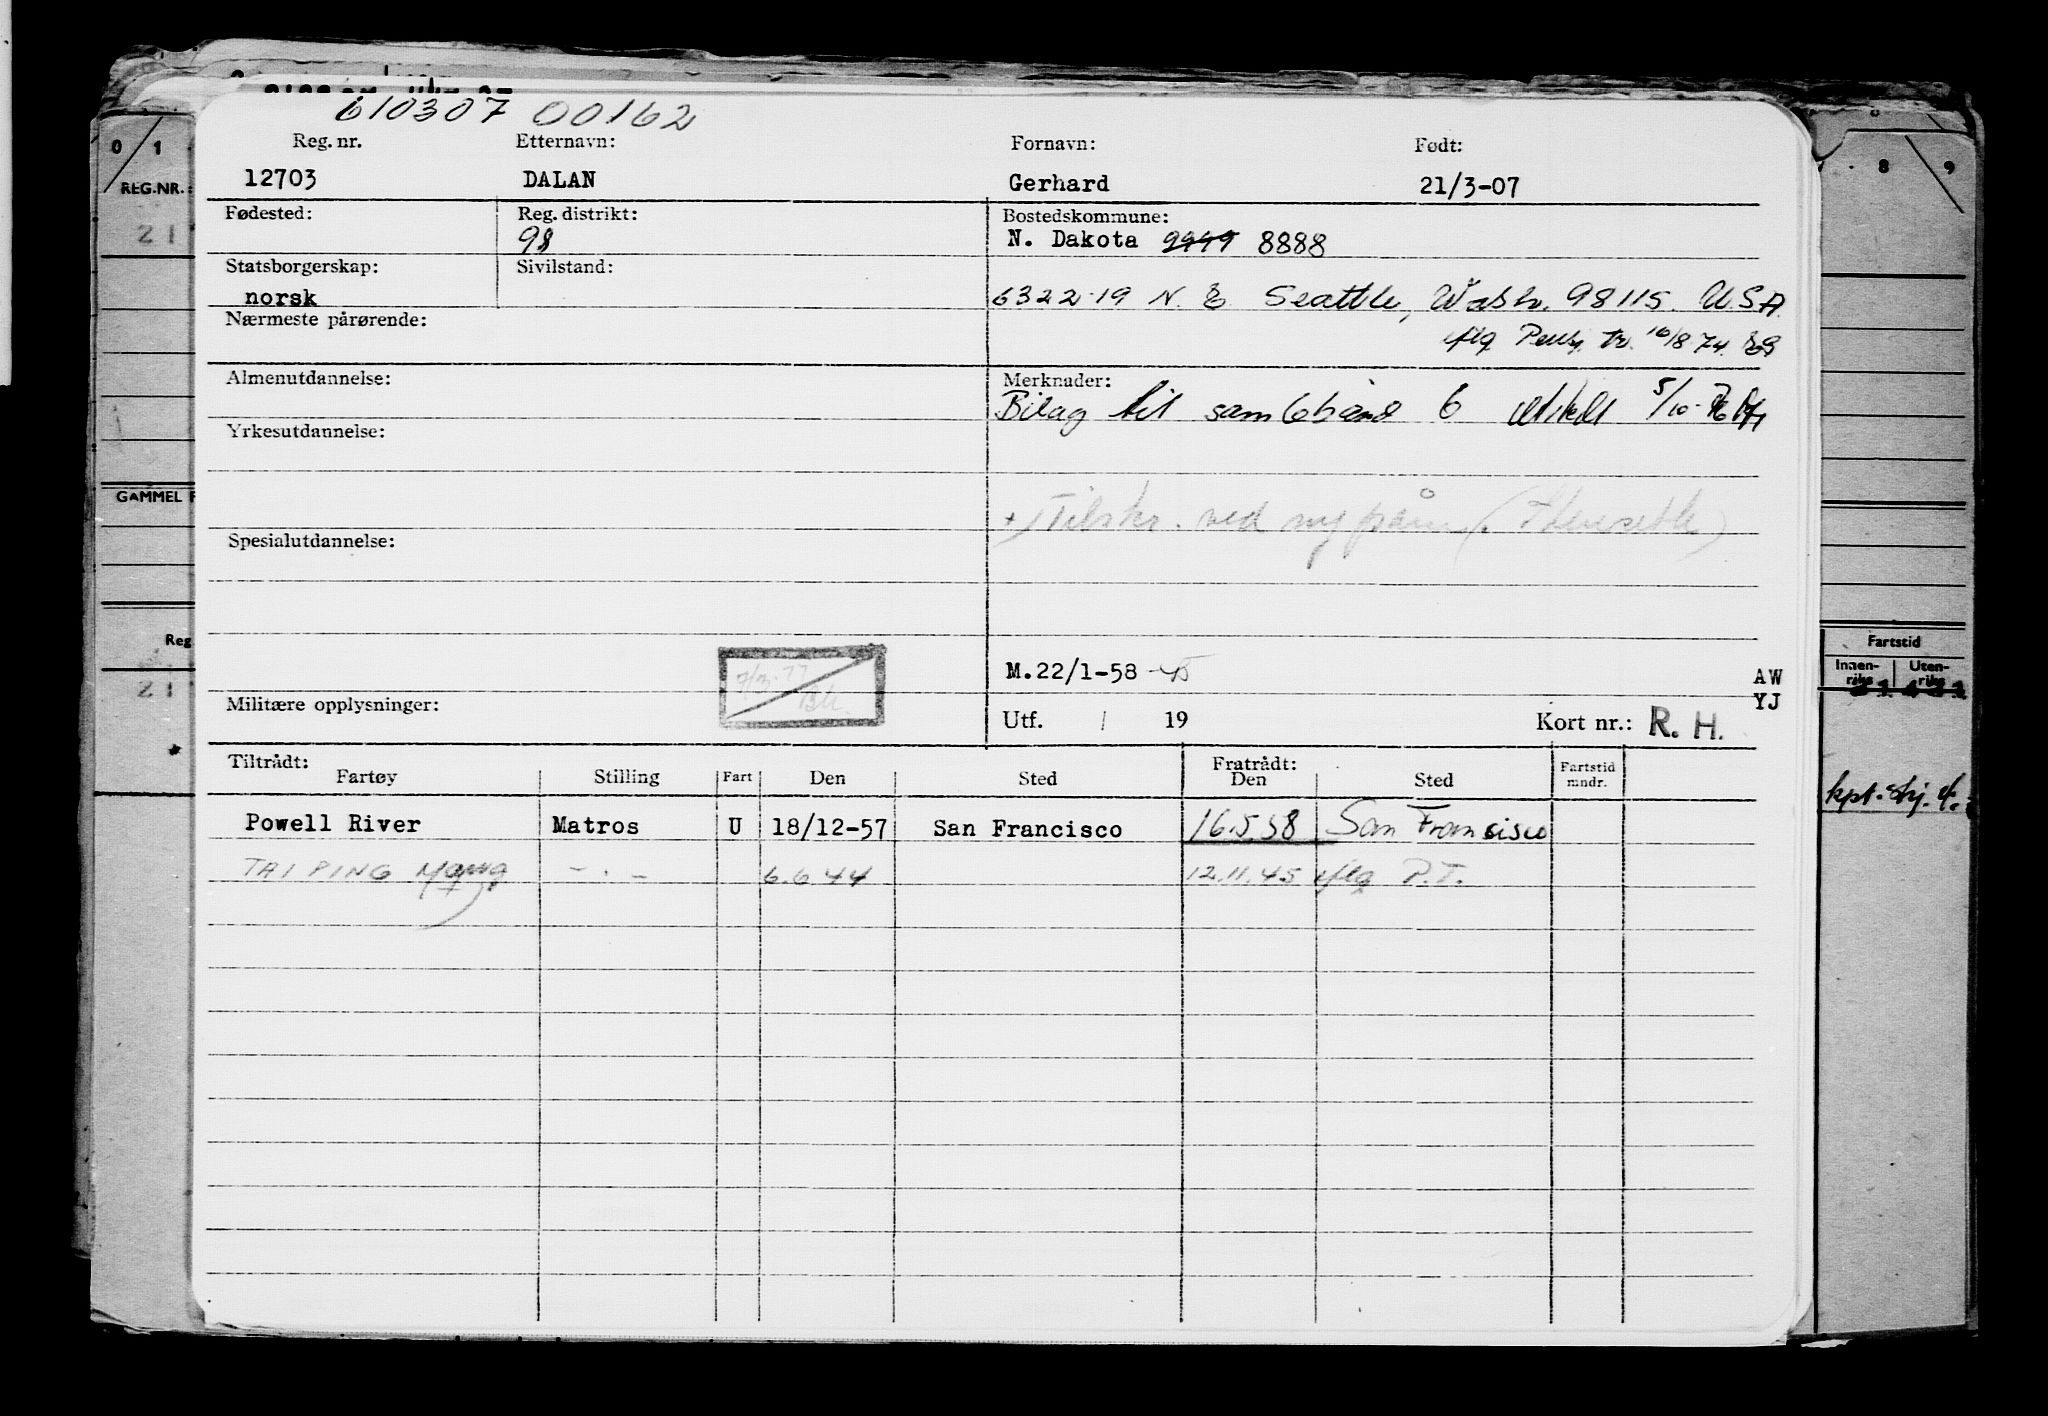 610307 00162
Reg. nr. Etternavn: Fornavn: Født:
12703 DALAN Gerhard 21/3-07
Fødested: Reg. distrikt: Bostedskommune:
98 N. Dakota 9949 8888
Statsborgerskap: Sivilstand:
norsk 6322-19 N. E Seattle, Wash. 98115. U.S.A.
Nærmeste pårørende:
iflg tr. 16/8 74.
Almenutdannelse: Merknader:
Bilag til 6 5/10-76
Yrkesutdannelse:
+) Tilskr. ved ny
Spesialutdannelse:
M.22/1-58
AW
YJ
7/3-77
Militære opplysninger: Utf. / 19 Kort nr.: R. H.
Tiltrådt: Fratrådt:
Fartøy Stilling Fart Den Sted Den Sted Fartstid mndr.
Powell River Matros U 18/12-57 San Francisco 16.5.58 San Francisco
TAI PING - . - 6.6.44 12.11.45 iflg P.T.
0 1
REG.NR.:
21
GAMMEL F
Reg
21
*
8 9
Fartstid
Innen-riks Uten-riks